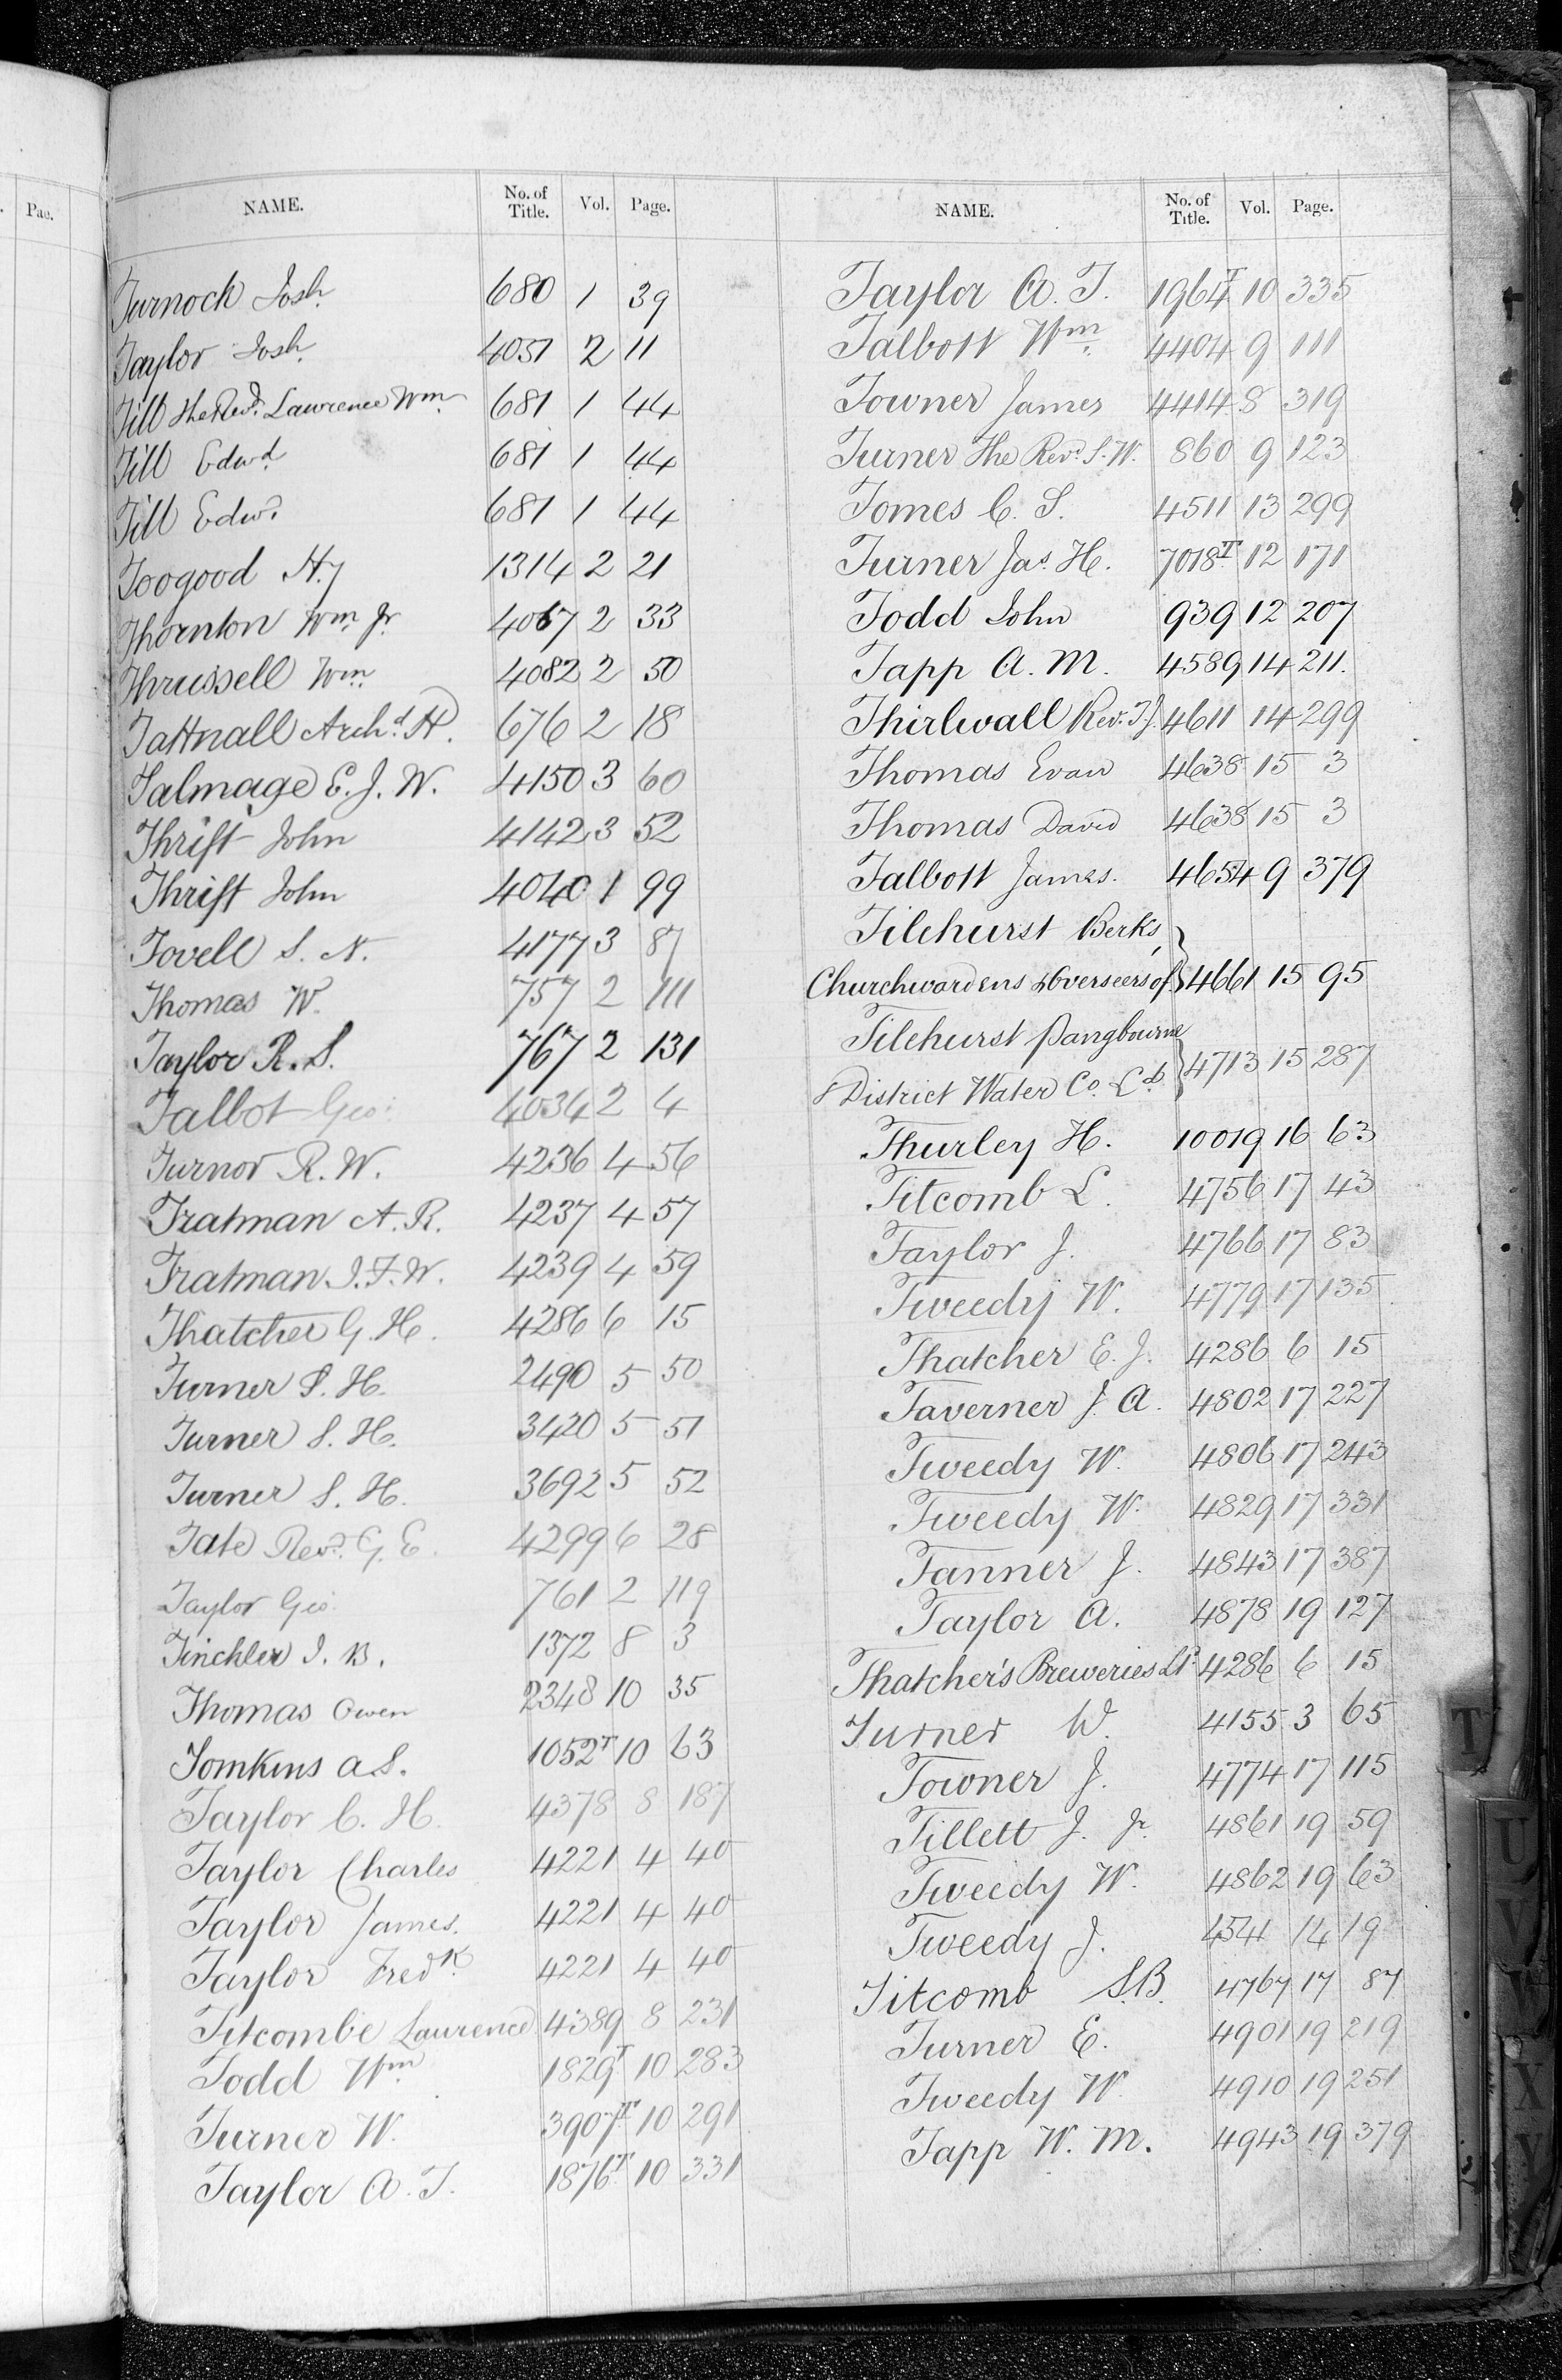 . Pae.
NAME. No. of Title. Vol. Page.
Turnock Josh. 680 1 39
Taylor Josh. 4051 2 11
Till The Revd. Lawrence Wm. 681 1 44
Till Edwd. 681 1 44
Till Edwd. 681 1 44
Toogood Hy 1314 2 21
Thornton Wm. Jr. 4067 2 33
Thrussell Wm. 4082 2 50
Tattnall Archd. H. 676 2 18
Talmage E. J. W. 4150 3 60
Thrift John 4142 3 52
Thrift John 4040 1 99
Tovell S. N. 4177 3 87
Thomas W. 757 2 111
Taylor R. S. 767 2 131
Talbot Geo. 4034 2 4
Turnor R. W. 4236 4 56
Tratman A. R. 4237 4 57
Tratman J. F. W. 4239 4 59
Thatcher G. H. 4286 6 15
Turner S. H. 2490 5 50
Turner S. H. 3420 5 51
Turner S. H. 3692 5 52
Tate Revd. G. E. 4299 6 28
Taylor Geo. 761 2 119
Tinchler J. B. 1372 8 3
Thomas Owen 2348 10 35
Tomkins A S. 1052T 10 63
Taylor C. H. 4378 8 187
Taylor Charles 4221 4 40
Taylor James. 4221 4 40
Taylor Fredk. 4221 4 40
Titcombe Laurence 4389 8 231
Todd Wm. 1829T 10 283
Turner W. 3907T 10 291
Taylor A. T. 1876T 10 331
NAME. No. of Title. Vol. Page.
Taylor A. T. 1964T 10 335
Talbott Wm. 4404 9 111
Towner James 4414 8 319
Turner The Revd. S. W. 860 9 123
Tomes C. S. 4511 13 299
Turner Jas. H. 7018T 12 171
Todd John 939 12 207
Tapp A. M. 4589 14 211.
Thirlwall Rev. T. J. 4611 14 299
Thomas Evan 4638 15 3
Thomas David 4638 15 3
Talbott James. 4654 9 379
Tilehurst Berks,
Churchwardens & Overseers of } 4661 15 95
Tilehurst Pangbourne
& District Water Co. Ld. } 4713 15 287
Thurley H. 10019 16 63
Titcomb L. 4756 17 43
Taylor J. 4766 17 83
Tweedy W. 4779 17 135
Thatcher E. J. 4286 6 15
Taverner J. A. 4802 17 227
Tweedy W. 4806 17 243
Tweedy W. 4829 17 331
Tanner J. 4843 17 387
Taylor A. 4878 19 127
Thatcher's Breweries Ld. 4286 6 15
Turner W. 4155 3 65
Towner J. 4774 17 115
Tillett J. Jr. 4861 19 59
Tweedy W. 4862 19 63
Tweedy J. 4541 14 19
Titcomb S.B. 4767 17 87
Turner E. 4901 19 219
Tweedy W. 4910 19 251
Tapp W. M. 4943 19 379
T
U
V
W
X
Y